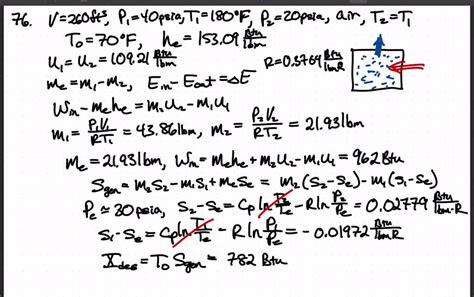 76. V=260ft³, P₁=40psia, T₁=180°F, P₂=20psia, air, T₂=T₁
T₀=70°F, hₑ=153.09 Btu/lbm
u₁=u₂=109.21 Btu/lbm
R=0.3704 Btu/lbmR
mₑ=m₁-m₂, Eᵢₙ-Eₒᵤₜ=ΔE
Wᵢₙ-mₑhₑ=m₂u₂-m₁u₁
m₁=P₁V₁/RT₁=43.86lbm, m₂=P₂V₂/RT₂=21.93lbm
mₑ=21.93lbm, Wᵢₙ=mₑhₑ+m₂u₂-m₁u₁=962Btu
Sgen=m₂s₂-m₁s₁+mₑsₑ=m₂(s₂-sₑ)-m₁(s₁-sₑ)
Pₑ≃30psia, s₂-sₑ=Cp ln T₂/Tₑ-R ln P₂/Pₑ=0.02779 Btu/lbm·R
s₁-sₑ=Cp ln T₁/Tₑ-R ln P₁/Pₑ=-0.01972 Btu/lbmR
Xdes=T₀Sgen=782 Btu